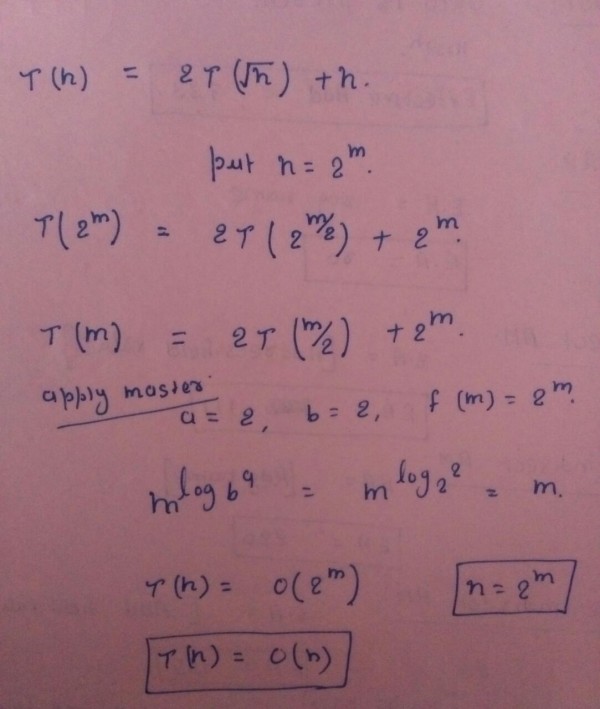 T(n) = 2T(√n) + n.
put n = 2^m.
T(2^m) = 2T(2^m/2) + 2^m.
T(m) = 2T(m/2) + 2^m.
apply master
a = 2, b = 2, f(m) = 2^m.
m^log b^a = m^log 2^2 = m.
T(n) = O(2^m) n = 2^m
T(n) = O(n)